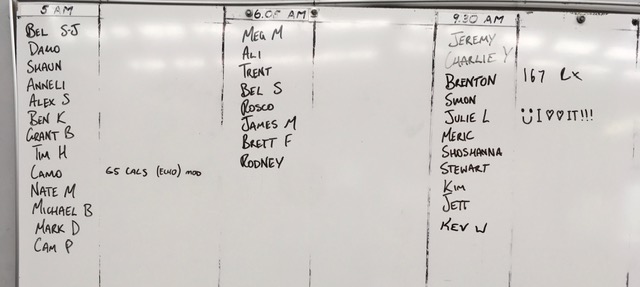 5 AM
BEL S-J
DAMO
SHAUN
ANNELI
ALEX S
BEN K
GRANT B
TIM H
CAMO 65 CALS (ECHO) MOD
NATE M
MICHAEL B
MARK D
CAM P
6.05 AM
MEG M
ALI
TRENT
BEL S
ROSCO
JAMES M
BRETT F
RODNEY
9.30 AM
JEREMY
CHARLIE Y
BRENTON 167 Rx
SIMON
JULIE L I ♡♡ IT!!!
MERIC
SHOSHANNA
STEWART
KIM
JETT
KEV W